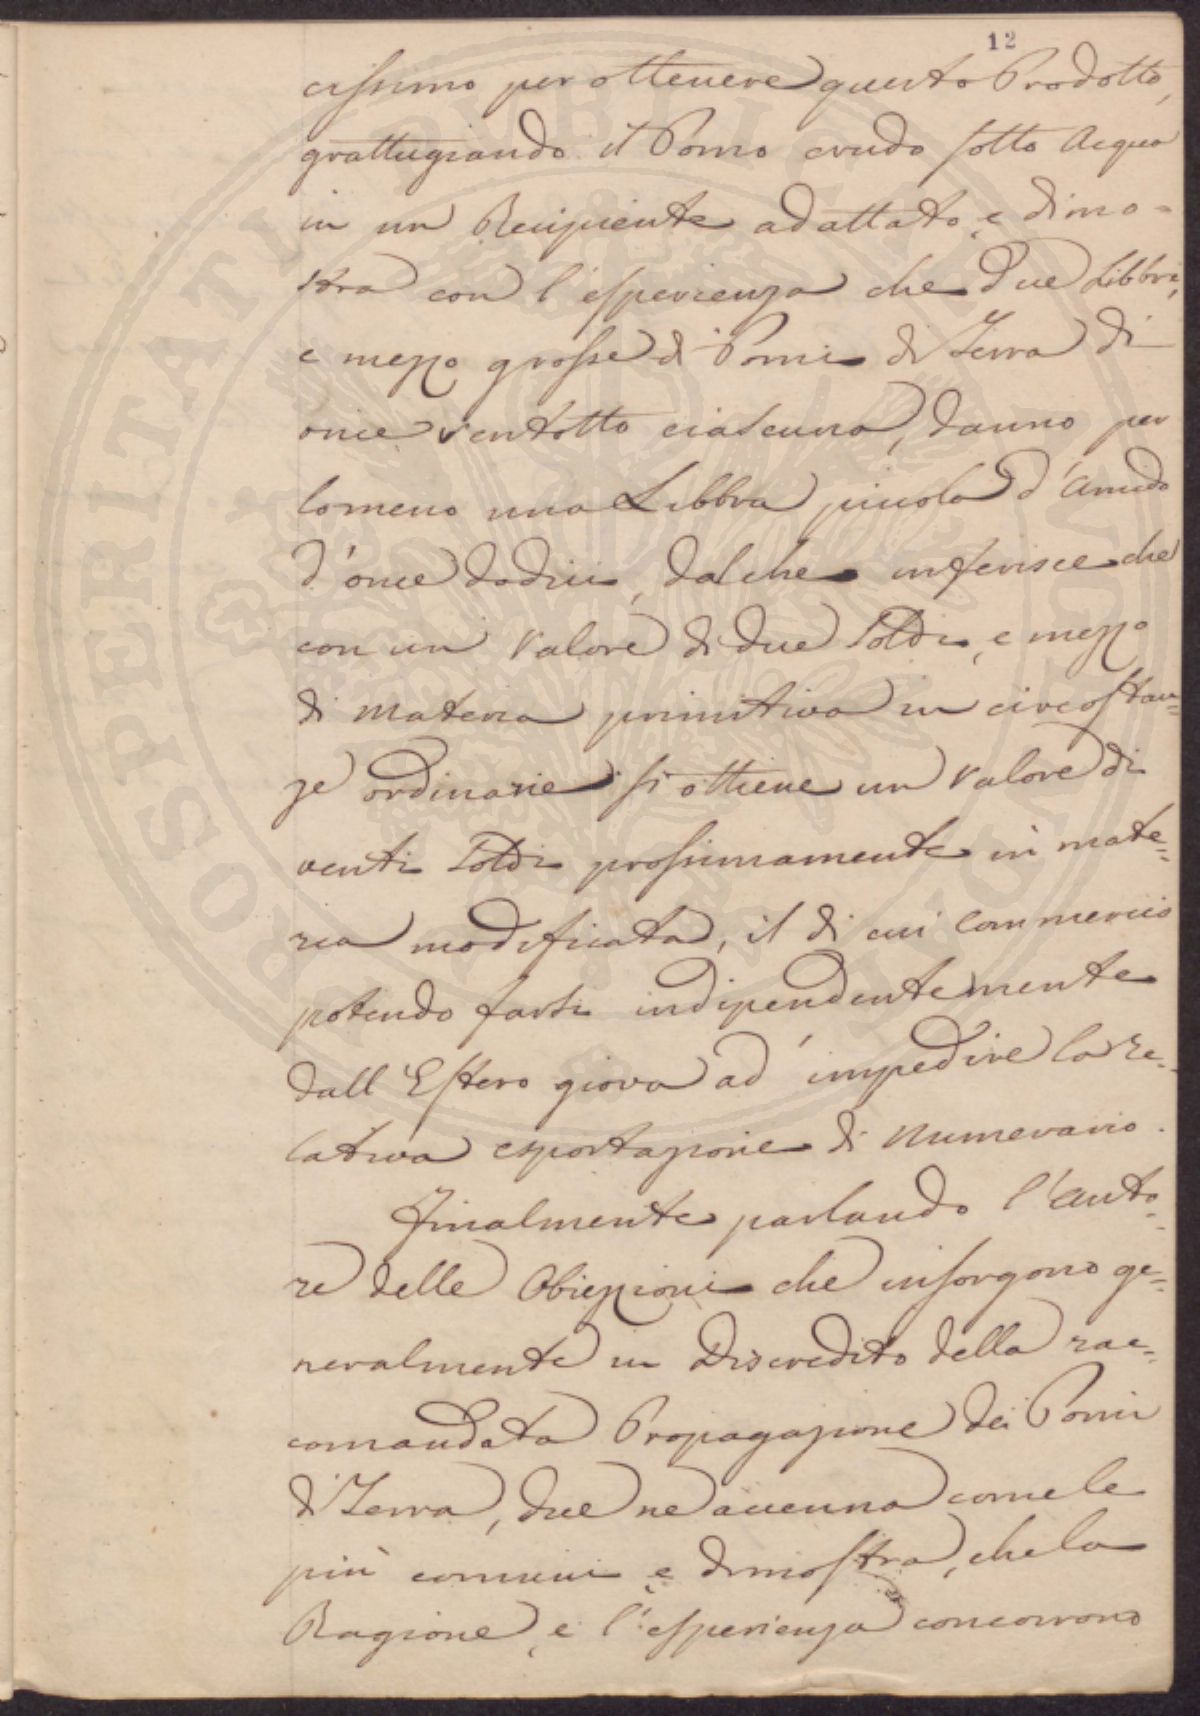 12
cissimo per ottenere questo Prodotto,
grattugiando il Pomo crudo sotto Acqua
in un Recipiente adattato, e dimo=
stra con l'esperienza che due Libbre,
e mezzo grosse di Pomi di Terra di
once ventotto ciascuna, danno per
lomeno una Libbra piccola d'Amido
d'once dodici, dal che inferisce che
con un valore di due Soldi, e mezzo
di materia primitiva in circostan=
ze ordinarie si ottiene un valore di
venti Soldi prossimamente in mate=
ria modificata, il di cui Commercio
potendo farsi indipendentemente
dall'Estero giova ad impedire la re=
lativa esportazione di Numerario.
Finalmente parlando l'Auto=
re delle Obiezzioni che insorgono ge=
neralmente in Discredito della rac=
comandata Propagazione dei Pomi
di Terra, due ne accenna come le
più comuni, e dimostra, che la
Ragione, e l'esperienza concorrono
PROSPERITATI PUBLICAE AUGENDAE